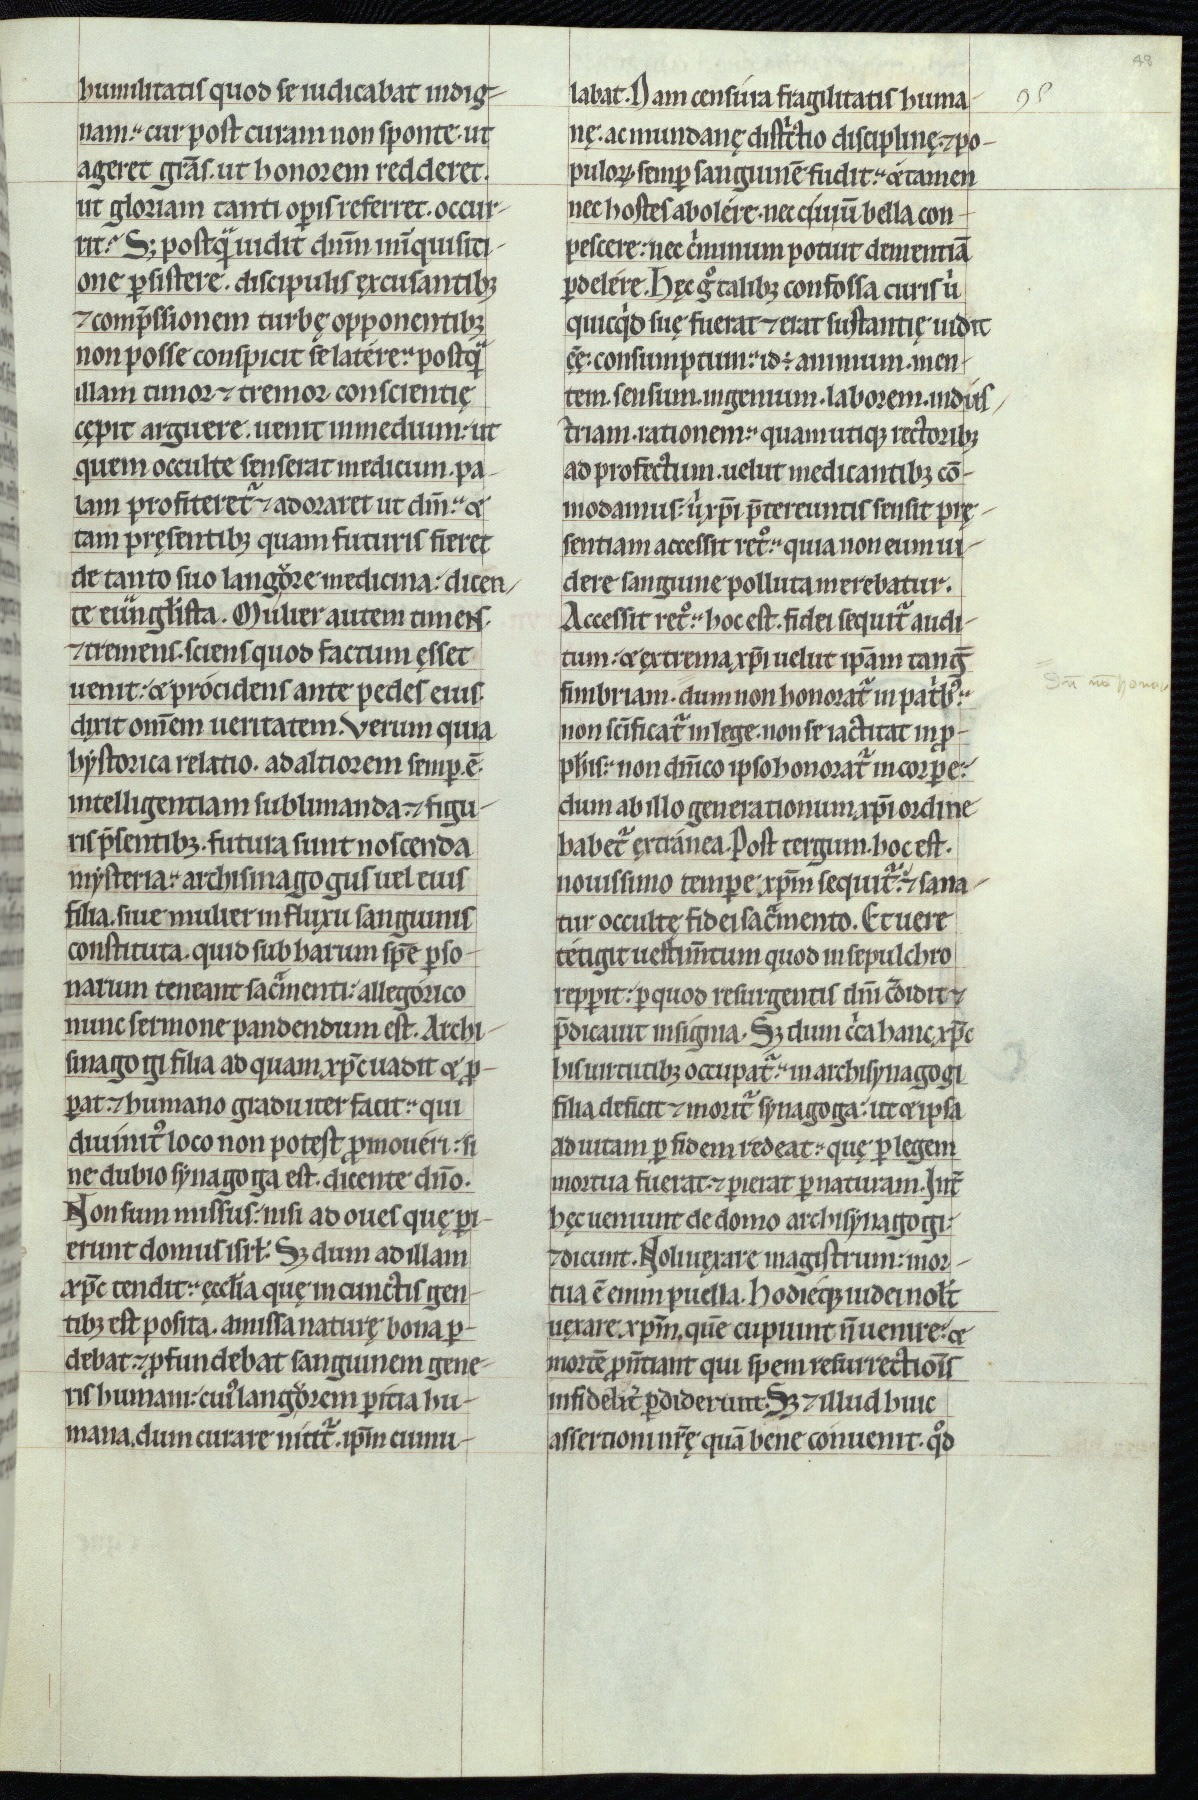 48
95
humilitatis quod se iudicabat indig-
nam:' cur post curam non sponte. ut
ageret gr̄as. ut honorem redderet.
ut gloriam tanti op̄is referret. occur-
rit:' S; postq̄ uidit dn̄m in inquisiti-
one p̱sistere. discipulis ęxcusantibꝫ
⁊ comp̄ssionem turbę opponentibꝫ
non posse conspicit se latére:' postq̄
illam timor ⁊ tremor conscientię
cępit arguere. uenit in medium: ut
quem occulte senserat medicum. pa-
lam profiteret᷑ ⁊ adoraret ut dn̄m:' &
tam pręsentibꝫ quam futuris fieret
de tanto suo langore medicina: dicen-
te euuanglista. Mulier autem timens
⁊ tremens. sciens quod factum ęsset
uenit: & prócidens ante pedes eius
dixit om̄em ueritatem. Verum quia
hystorica relatio. ad altiorem semp̱ ē
intelligentiam sublimanda: ⁊ figu-
ris p̄sentibꝫ. futura sunt noscenda
mysteria:' archisinagogus uel eius
filia. siue mulier in fluxu sanguinis
constituta. quid sub harum sp̄e p̱so-
narum teneant sac̄menti: allegórico
nunc sermone pandendum est. Archi-
sinagogi filia ad quam xp̄c uadit & p̱-
pat. ⁊ humano gradu iter facit:' qui
diuinit᷒ loco non potest ꝓmouéri: si-
ne dubio synagoga est. dicente dn̄o.
Non sum missus: nisi ad oues quę p̱i-
erunt domus isrł. Sꝫ dum ad illam
xp̄c tendit:' ęcclia quę in cunctis gen-
tibꝫ est posita. amissa naturę bona p̱-
debat: ⁊ ꝓfundebat sanguinem gene-
ris humani: cui᷒ langorem p̱itia hu-
mana. dum curare nitit᷑. ip̄m cumu-
labat. Nam censúra fragilitatis huma-
nę. ac mundanę districtio disciplinę. ⁊ po-
pulorꝝ semp̱ sanguinē fudit:' & tamen
nec hostes abolére. nec ciuiū bella con-
pescere: nec c̓minum potuit dementiā
p̱delére. Hęc g̊ talibꝫ confossa curis ul̓
quicq̓d suę fuerat ⁊ erat substantię uidit
ēē consumptum:' id ÷ animum. men-
tem. sensum. ingenium. laborem. indus-
triam. rationem:' quam utiqꝫ rectoribꝫ
ad profectum. uelut medicantibꝫ cō-
modamus: ubi xp̄i p̄tereuntis sensit prę-
sentiam accessit retro:' quia non eum ui-
dere sanguine polluta merebatur.
Accessit retro:' hoc est. fidei sequit᷑ audi-
tum: & ęxtrema xp̄i uelut ip̄am tang̅
fimbriam. dum non honorat᷑ in patribꝫ:'
non scīficat᷑ in lege. non se iactitat in p̱-
phis:' non dn̄ico ipso honorat᷑ in corpore:'
dum ab illo generationum xp̄i ordine
habet᷑ ęxtránea. Post tergum. hoc est.
nouissimo tempore xp̄m sequit᷑: ⁊ sana-
tur occultę fidei sac̄mento. Et uere
tétigit uestim̄tum quod in sepulchro
repp̱it: p̱ quod resurgentis dn̄i c̄didit ⁊
p̄dicauit insignia. Sꝫ dum c̓ca hanc xp̄c
his uirtutibꝫ occupat᷑:' in archisynagogi
filia deficit ⁊ morit᷑ synagoga: ut & ipsa
ad uitam p̱ fidem redeat:' quę p̱ legem
mortua fuerat. ⁊ p̱ierat p̱ naturam. Int̓
hęc ueniunt de domo archisynagogi:
⁊ dicunt. Noli uęxare magistrum: mor-
tua ē enim puella. Hodieqꝫ iudei nolt̄
uęxare xp̄m. quē cupiunt ñ uenire: &
mortē ꝓnt̄iant qui spem resurrectiōis
infidelit̓ p̱diderunt. Sꝫ ⁊ illud huic
assertioni nr̄ę quā bene conuenit. q̊d